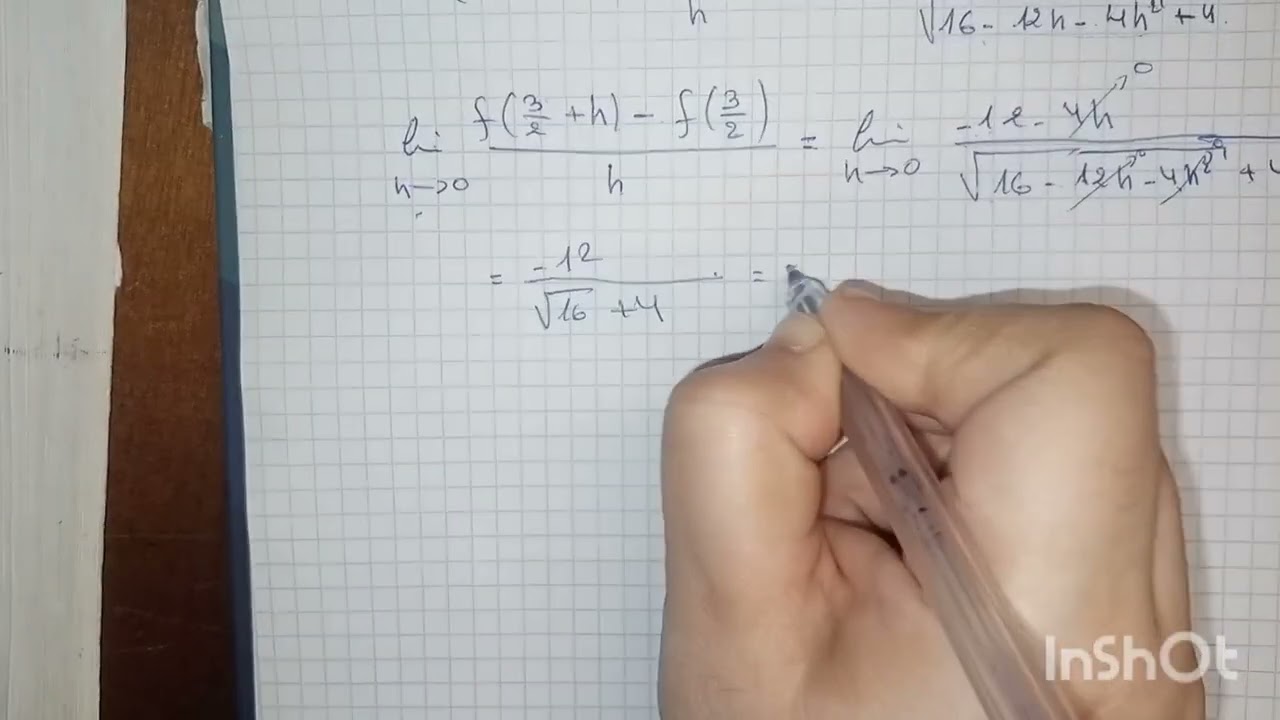 h √16 - 12h - 4h² + 4
lim h→0 (f(3/2 + h) - f(3/2)) / h = lim h→0 (-12 - 4h → 0) / (√16 - 12h → 0 - 4h² → 0 + 4
= -12 / (√16 + 4) = -
InShOt